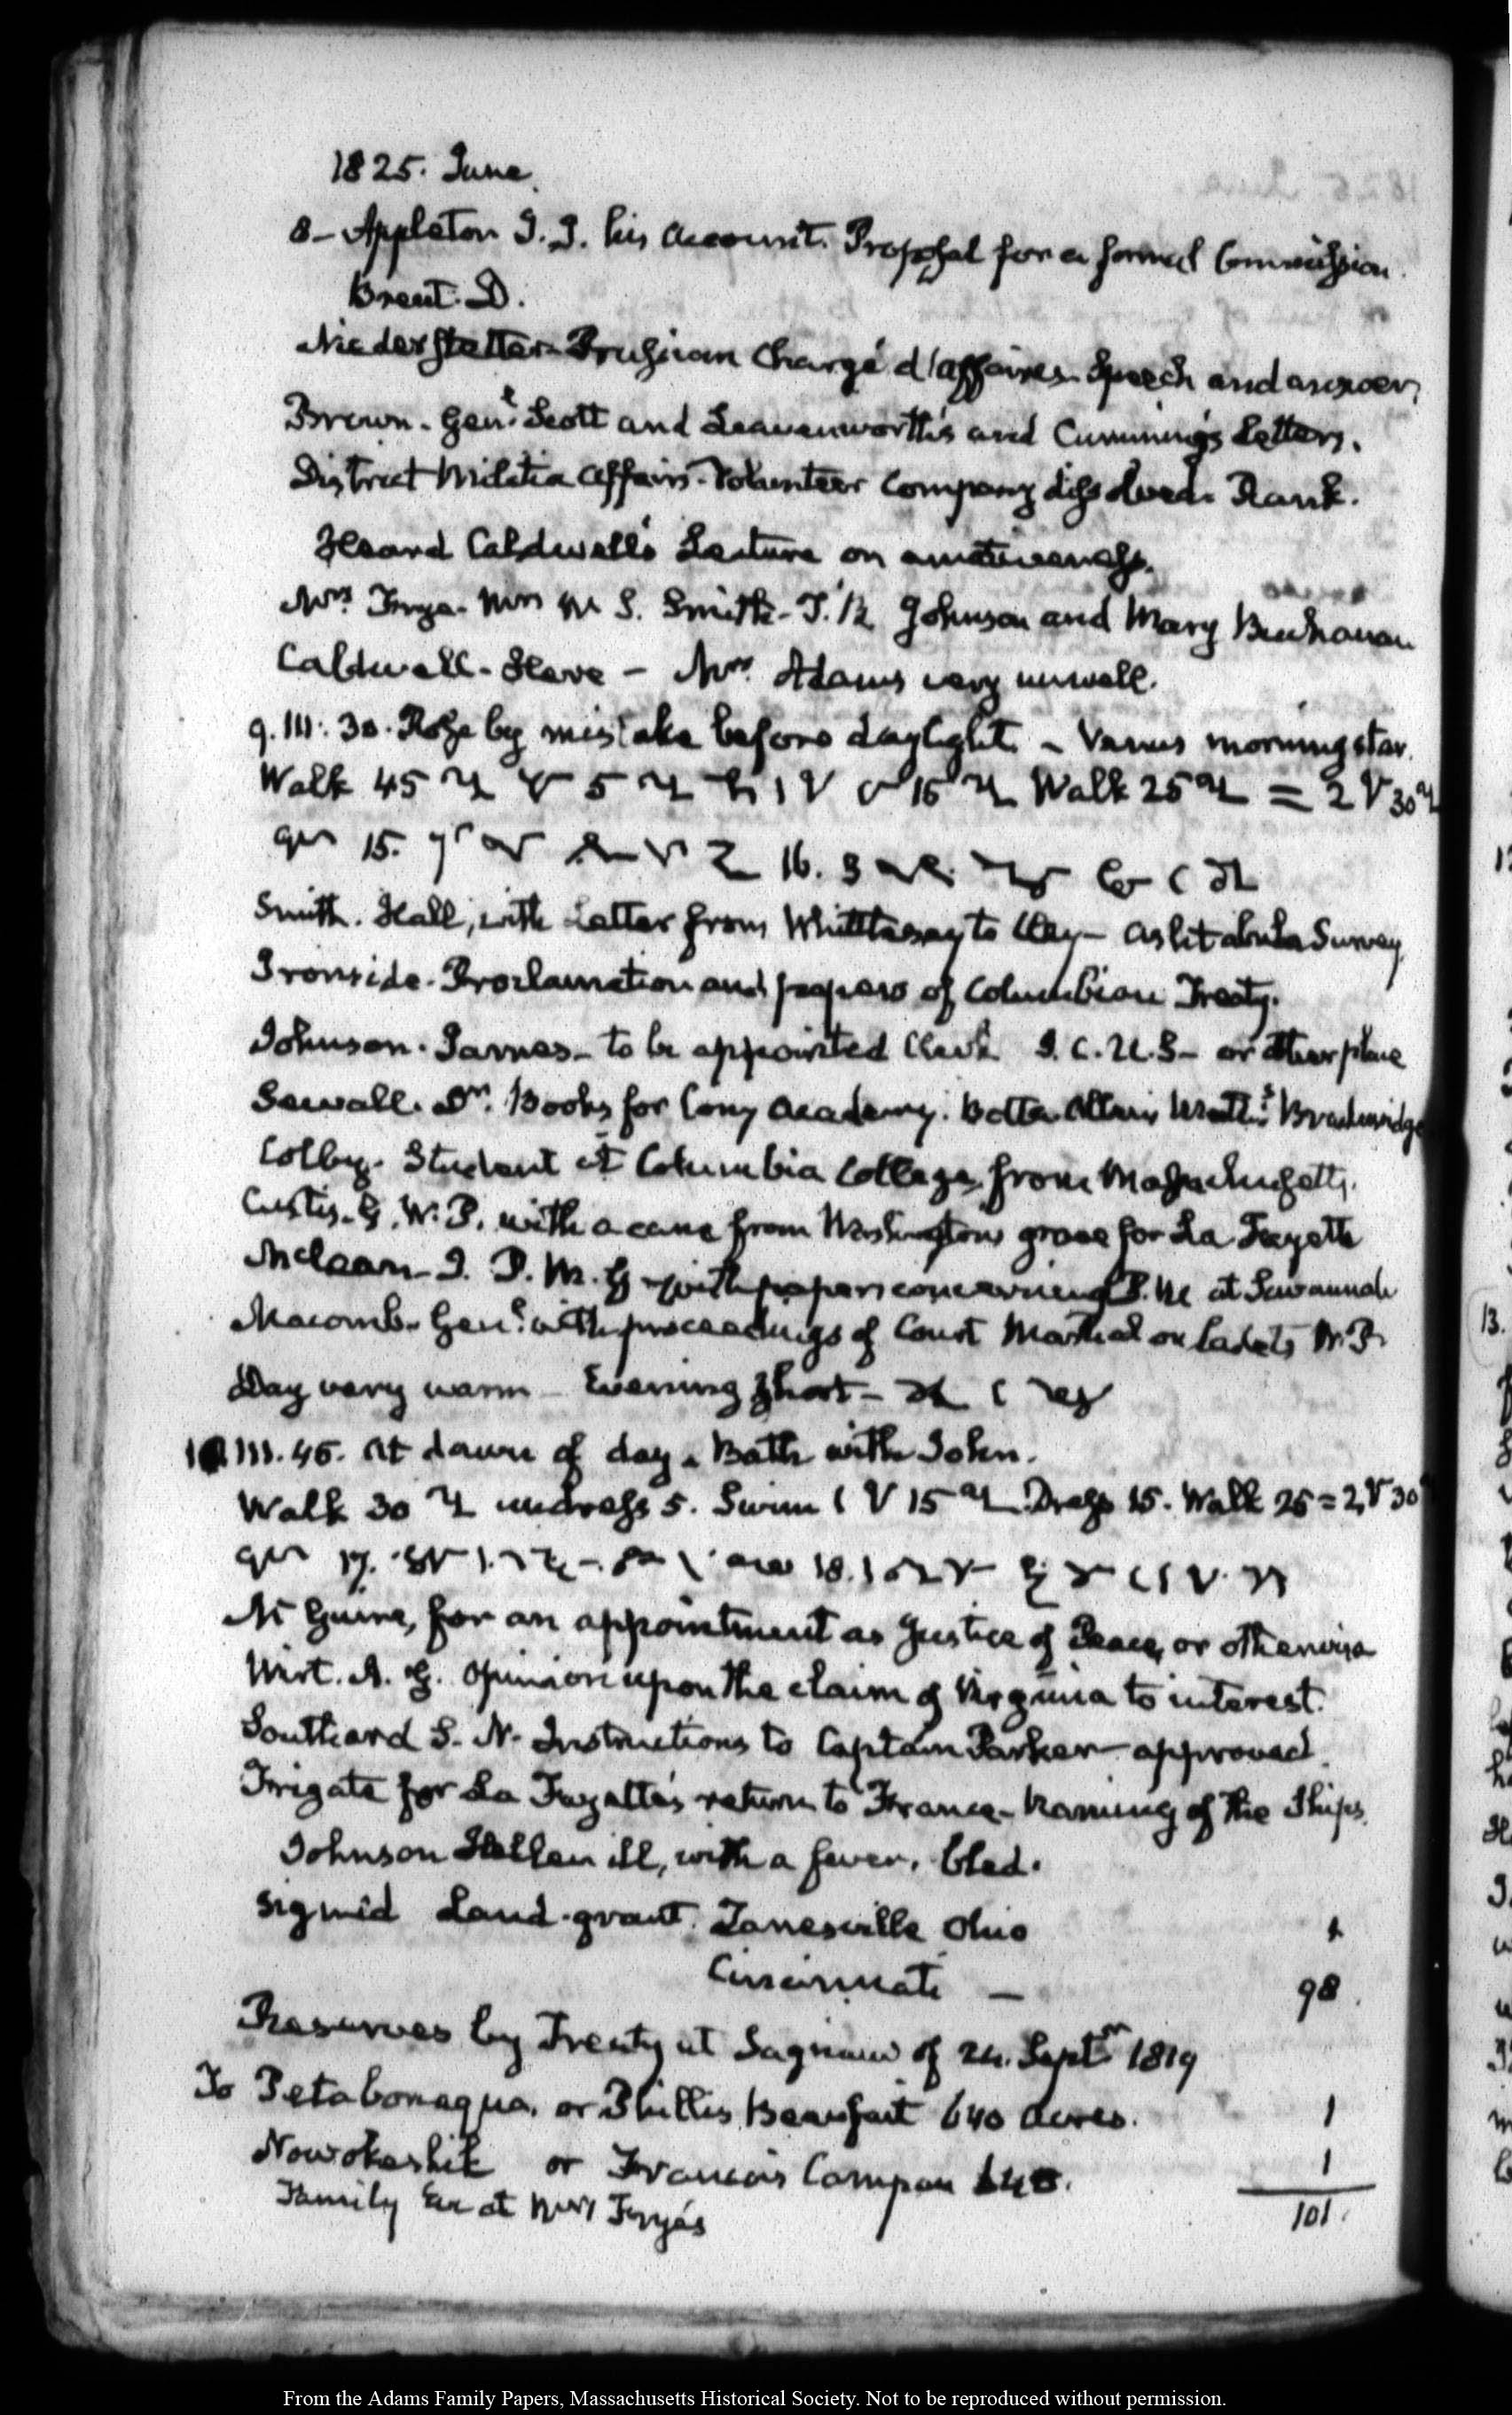 1825. June.
8 - Appleton J. J. his Account. Proposal for a formal Commission.
Brent. D.
Niederstetter - Prussian Chargé d'affaires. Speech and answer,
Brown. Genl. Scott and Leavenworth's and Cumming's Letters.
District Militia Affairs. Volunteer Company dissolved. Rank.
Heard Caldwell's Lecture on amativeness.
Mrs. Frye. Mrs W S. Smith - T. B. Johnson and Mary Buchanan
Caldwell - Slave - Mrs. Adams very unwell.
9. III: 30. Rose by mistake before daylight. - Venus morning star.
Walk 45 5 1 15 Walk 25 = 2 30
15. 16.
Smith. Hall, with Letter from Whittlesey to Clay - Ashtabula Survey
Ironside. Proclamation and papers of Columbian Treaty.
Johnson. James - to be appointed Clerk S. C. U. S - or other place
Sewall. Dr. Books for Cony Academy. Botta
Colby. Student at Columbia College, from Massachusetts.
Custis. G. W. P. with a cane from Washington's grave for La Fayette
McLean - J. P. M. G - with papers concerning P. M at Savannah
Macomb. Genl. with proceedings of Court Martial on Cadets W. P.
Day very warm - Evening short -
10 III. 45. At dawn of day. Bath with John.
Walk 30 undress 5. Swim 1 15 Dress 15. Walk 25 = 2 30
17. 18.
Mc Guire, for an appointment as Justice of Peace, or otherwise
Wirt. A. G. Opinion upon the claim of Virginia to interest.
Southard S. N. Instructions to Captain Parker approved.
Frigate for La Fayette's return to France - Naming of the Ships.
Johnson Hellen ill, with a fever, bled.
Signed Land-grant. Zanesville Ohio 1
Cincinnati - 98.
Reserves by Treaty at Sagnaw of 24. Septr. 1819
To Petabonaqua, or Phillis Beaufait 640 acres. 1
Nowokeshik or Francois Campau 640. 1
Family Eve at Mrs Frye's 101.
From the Adams Family Papers, Massachusetts Historical Society. Not to be reproduced without permission.